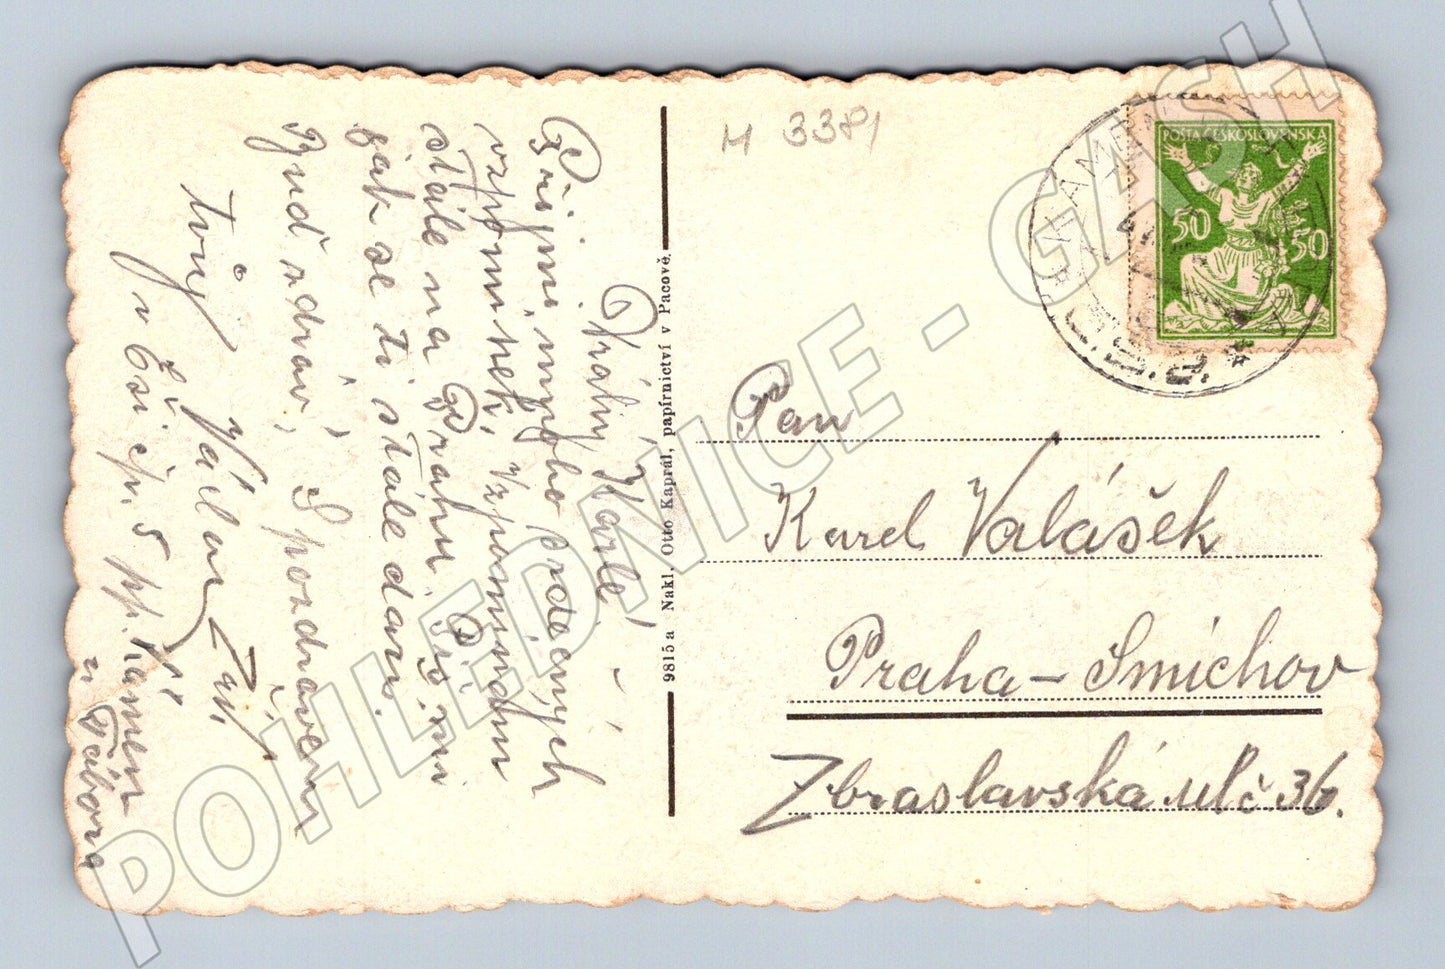 Drahý Karle –
Přijmi mnoho srdečných
vzpomínek, vzpomínám
stále na Prahu. Piš mi
jak se ti stále daří.
Buď zdráv, S pozdravem
tvůj Václav
v Obci čp. 5 pp. Kámen
u Tábora
9815 a Nakl. Otto Kaprál, papírnictví v Pacově.
H 3381
POŠTA ČESKOSLOVENSKÁ
50 50
KÁMEN
Pan
Karel Valášek
Praha – Smíchov
Zbraslavská ul. č. 36.
POHLEDNICE - GASH